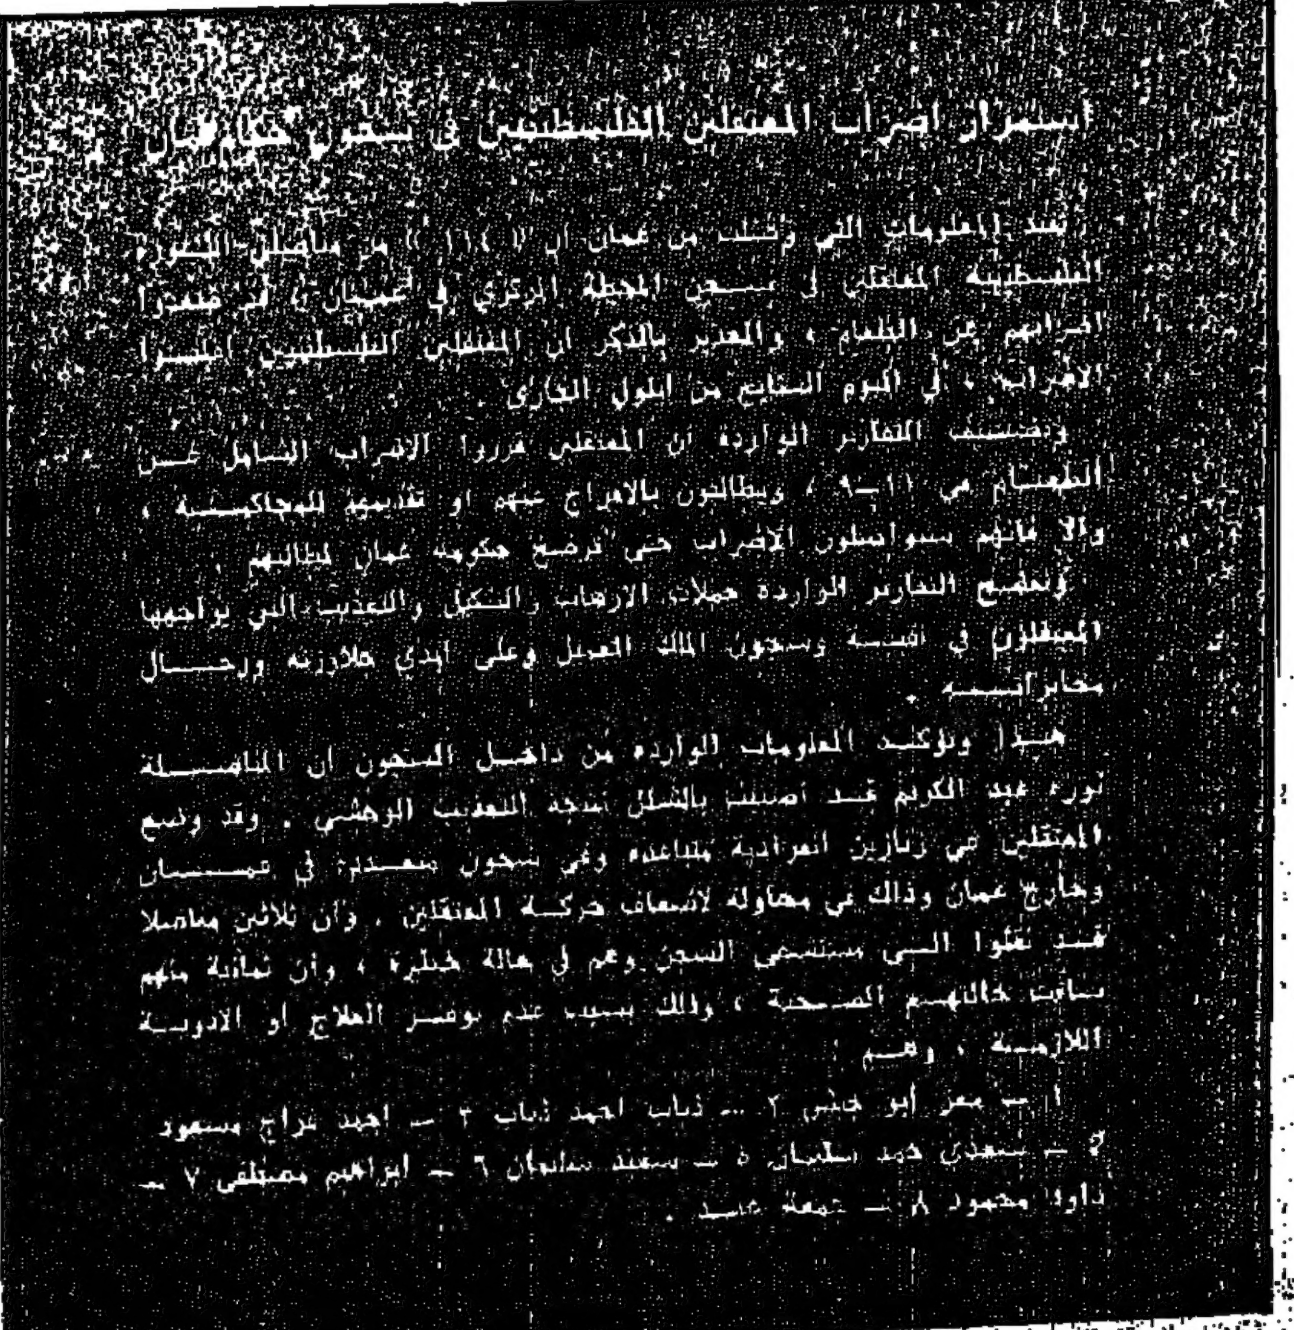 استمرار اضراب المعتقلين الفلسطينيين في سجون حكام عمان
تفيد المعلومات التي وصلت من عمان ان « ١١٤ » من مناضلي الثورة
الفلسطينية المعتقلين في سجن المحطة المركزي في عمان ، قد صعدوا
اضرابهم عن الطعام ، والجدير بالذكر ان المعتقلين الفلسطينيين اعلنوا
الاضراب ، في اليوم السابع من ايلول الجاري .
وتضيف التقارير الواردة ان المعتقلين قرروا الاضراب الشامل عن
الطعام في ١١ــ٩ ، ويطالبون بالافراج عنهم او تقديمهم للمحاكمة ،
والا فانهم سيواصلون الاضراب حتى ترضخ حكومة عمان لمطالبهم .
وتفضح التقارير الواردة حملات الارهاب والتنكيل والتعذيب التي يواجهها
المعتقلون في اقبية وسجون الملك العميل وعلى ايدي جلاوزته ورجال
مخابراته .
هذا وتؤكد المعلومات الواردة من داخل السجون ان المناضلة
نورة عبد الكريم قد اصيبت بالشلل نتيجة التعذيب الوحشي . وقد وضع
المعتقلين في زنازين انفرادية متباعدة وفي سجون متعددة في عمان
وخارج عمان وذلك في محاولة لاضعاف حركة المعتقلين . وان ثلاثين مناضلا
قد نقلوا الى مستشفى السجن وهم في حالة خطيرة ، وان ثمانية منهم
ساءت حالتهم الصحية ، وذلك بسبب عدم توفر العلاج او الادوية
اللازمة ، وهم
١ ــ معن أبو ٢ ــ ذياب احمد ذياب ٣ ــ احمد مسعود
٤ ــ سعدي حمد سليمان ٥ ــ سعيد سليمان ٦ ــ ابراهيم مصطفى ٧ ــ
داود محمود ٨ ــ جمعة عيد .